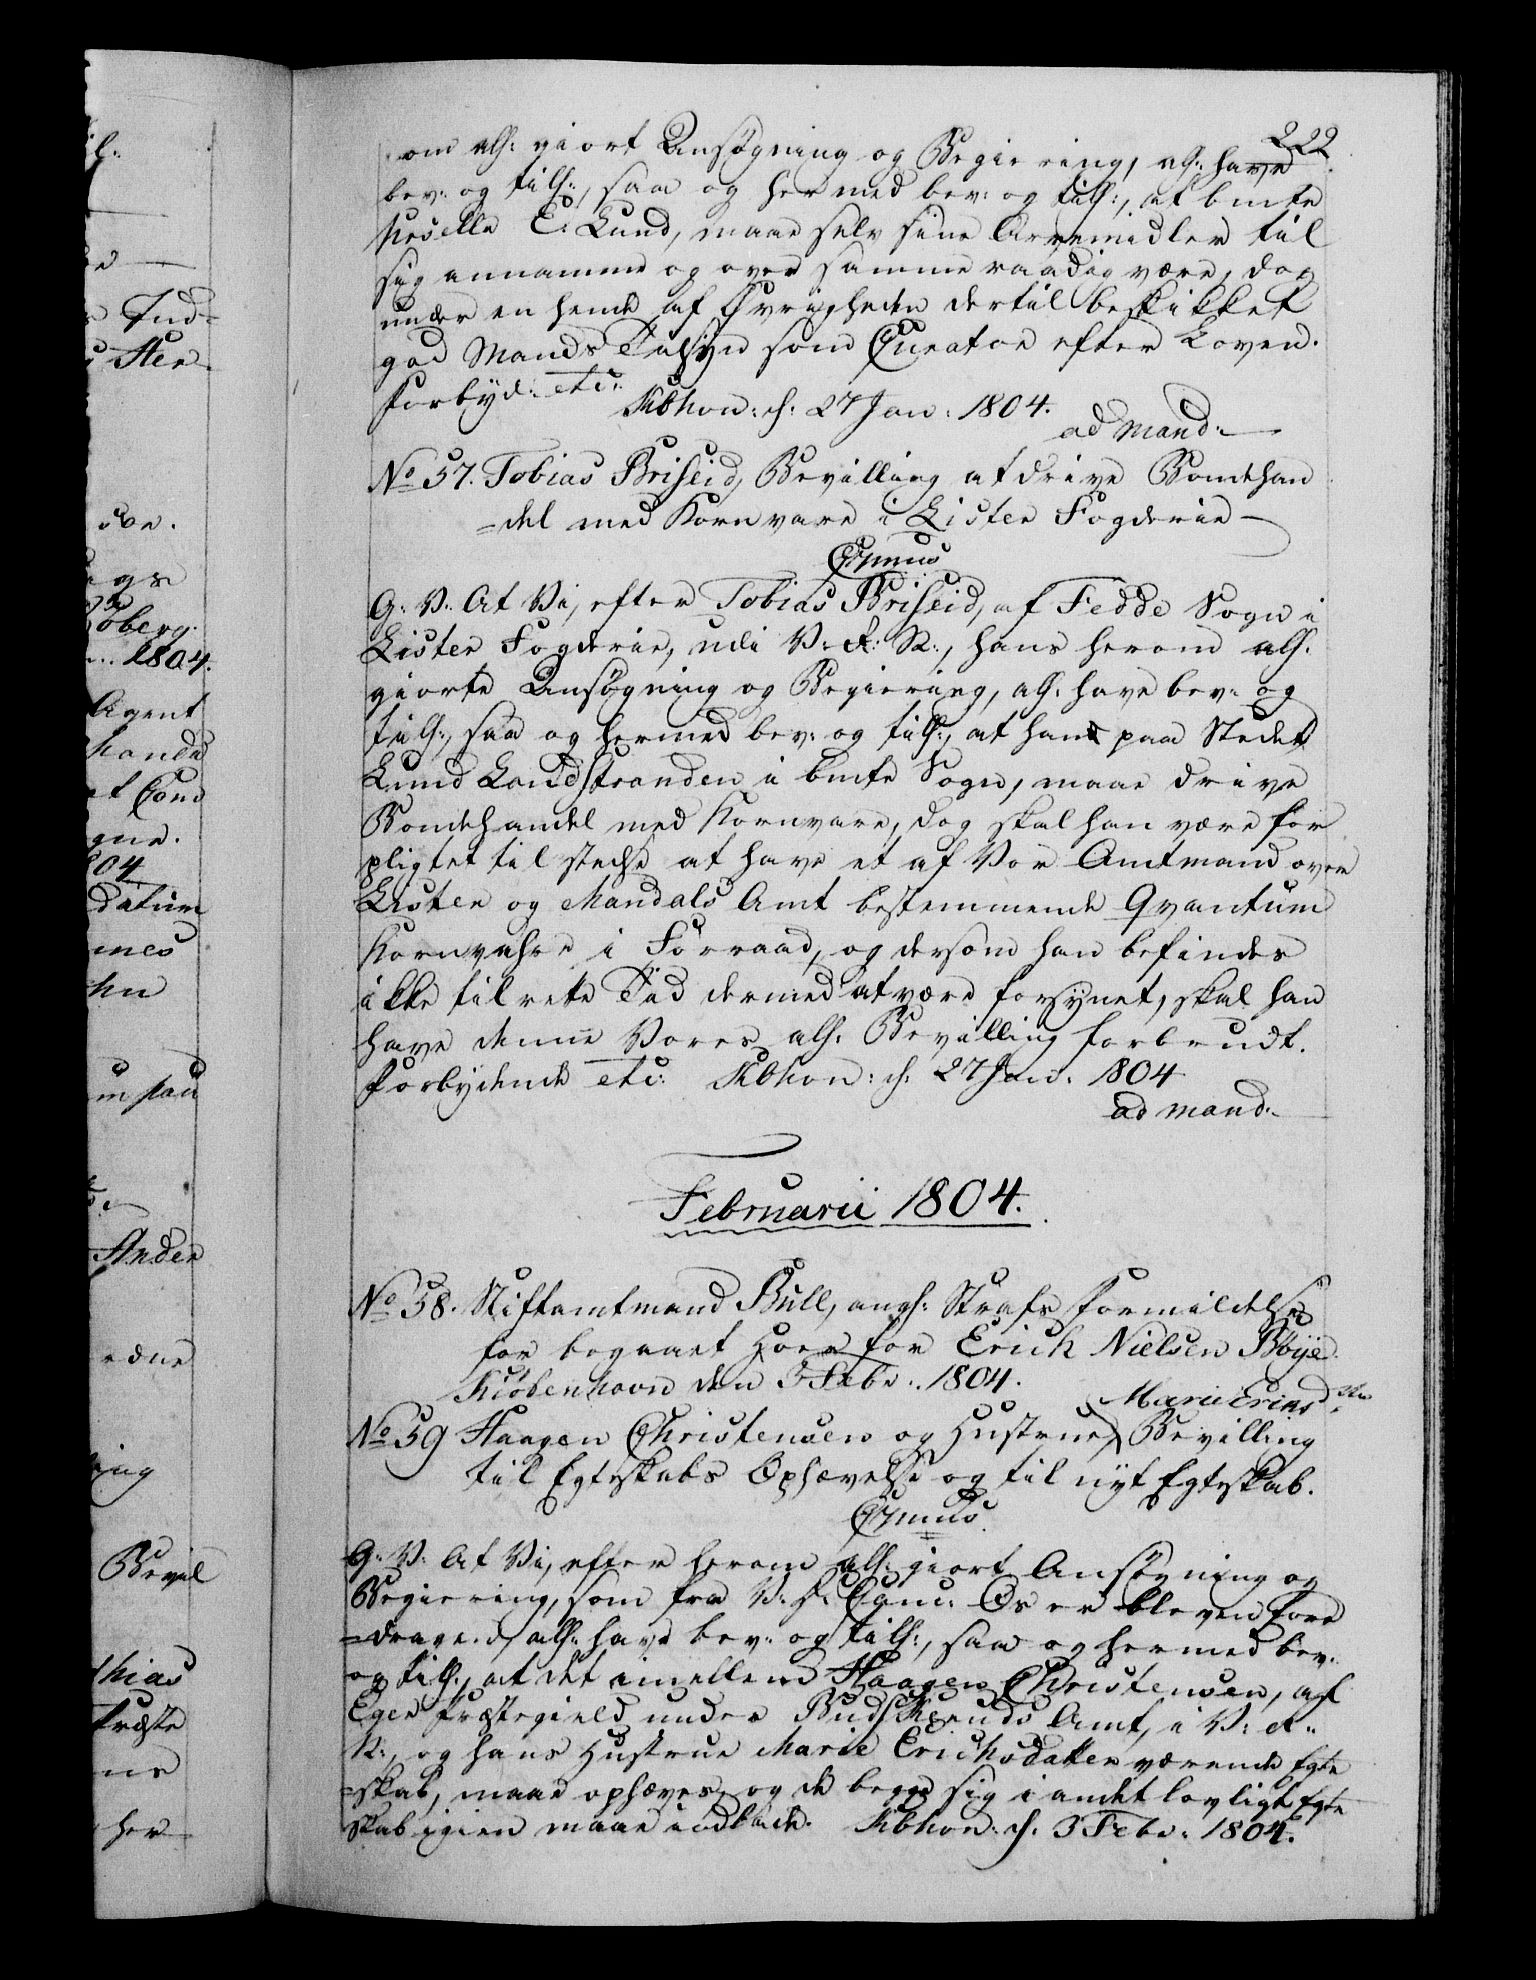 222
om all: giort Ansøgning og Begiering, all: have
bev: og till:, saa og hermed bev: og till:, at bmte
E. Lund, maae selv sine Arvemidler til
sig annamme og over samme raadig være, dog
under en hende af Øvrigheden dertil beskikket
god Mands Tilsyn som Curator efter Loven.
Forbyd: etc:
Kbhvn: d: 27 Jan: 1804.
ad mand:
No 57. Tobias Briseid, Bevilling at drive Bondehan
=del med Kornvare i Lister Fogderie
G: V: At Vi, efter Tobias Briseid, af Fedde Sogn i
Lister Fogderie, udi V: R: N:, hans herom all:
giorte Ansøgning og Begiering, all: have bev: og
till:, saa og hermed bev: og till:, at han paa Stedet
Lund Landstranden i bmte Sogn, maae drive
Bondehandel med Kornvare, dog skal han være for
pligtet til stedse at have et af Vor Amtmand over
Lister og Mandals Amt bestemmende Qvantum
Kornvahre i Forraad, og dersom han befindes
ikke til rette Tid dermed at være forsynet, skal han
have denne Vores all: Bevilling forbrudt.
Forbydende etc: Kbhvn: d: 27 Jan: 1804
ad mand:
Februarii 1804.
No 58. Stiftamtmand Bull, angl: Strafs Formildelse
for begaaet Hoer for Erich Nielsen Bøye.
Kiøbenhavn den 3 Febr: 1804.
Marie Erichsd:
No 59 Haagen Christensen og Hustrue, Bevilling
til Egteskabs Ophævelse og til nyt Egteskab.
G: V: At Vi, efter herom all: giort Ansøgning og
Begiering, som fra V: D: Canc: Os er bleven fore
=dragen, all: have bev: og till:, saa og hermed bev:
og till:, at det imellem Haagen Christensen, af
Eger Præstegield under Budskeruds Amt, i V: R:
N:, og hans Hustrue Marie Erichsdatter værende Egte
=skab, maae ophæves, og de begge sig i andet lovligt Egte
skab igien maae indlade. Kbhvn: d: 3 Febr: 1804.